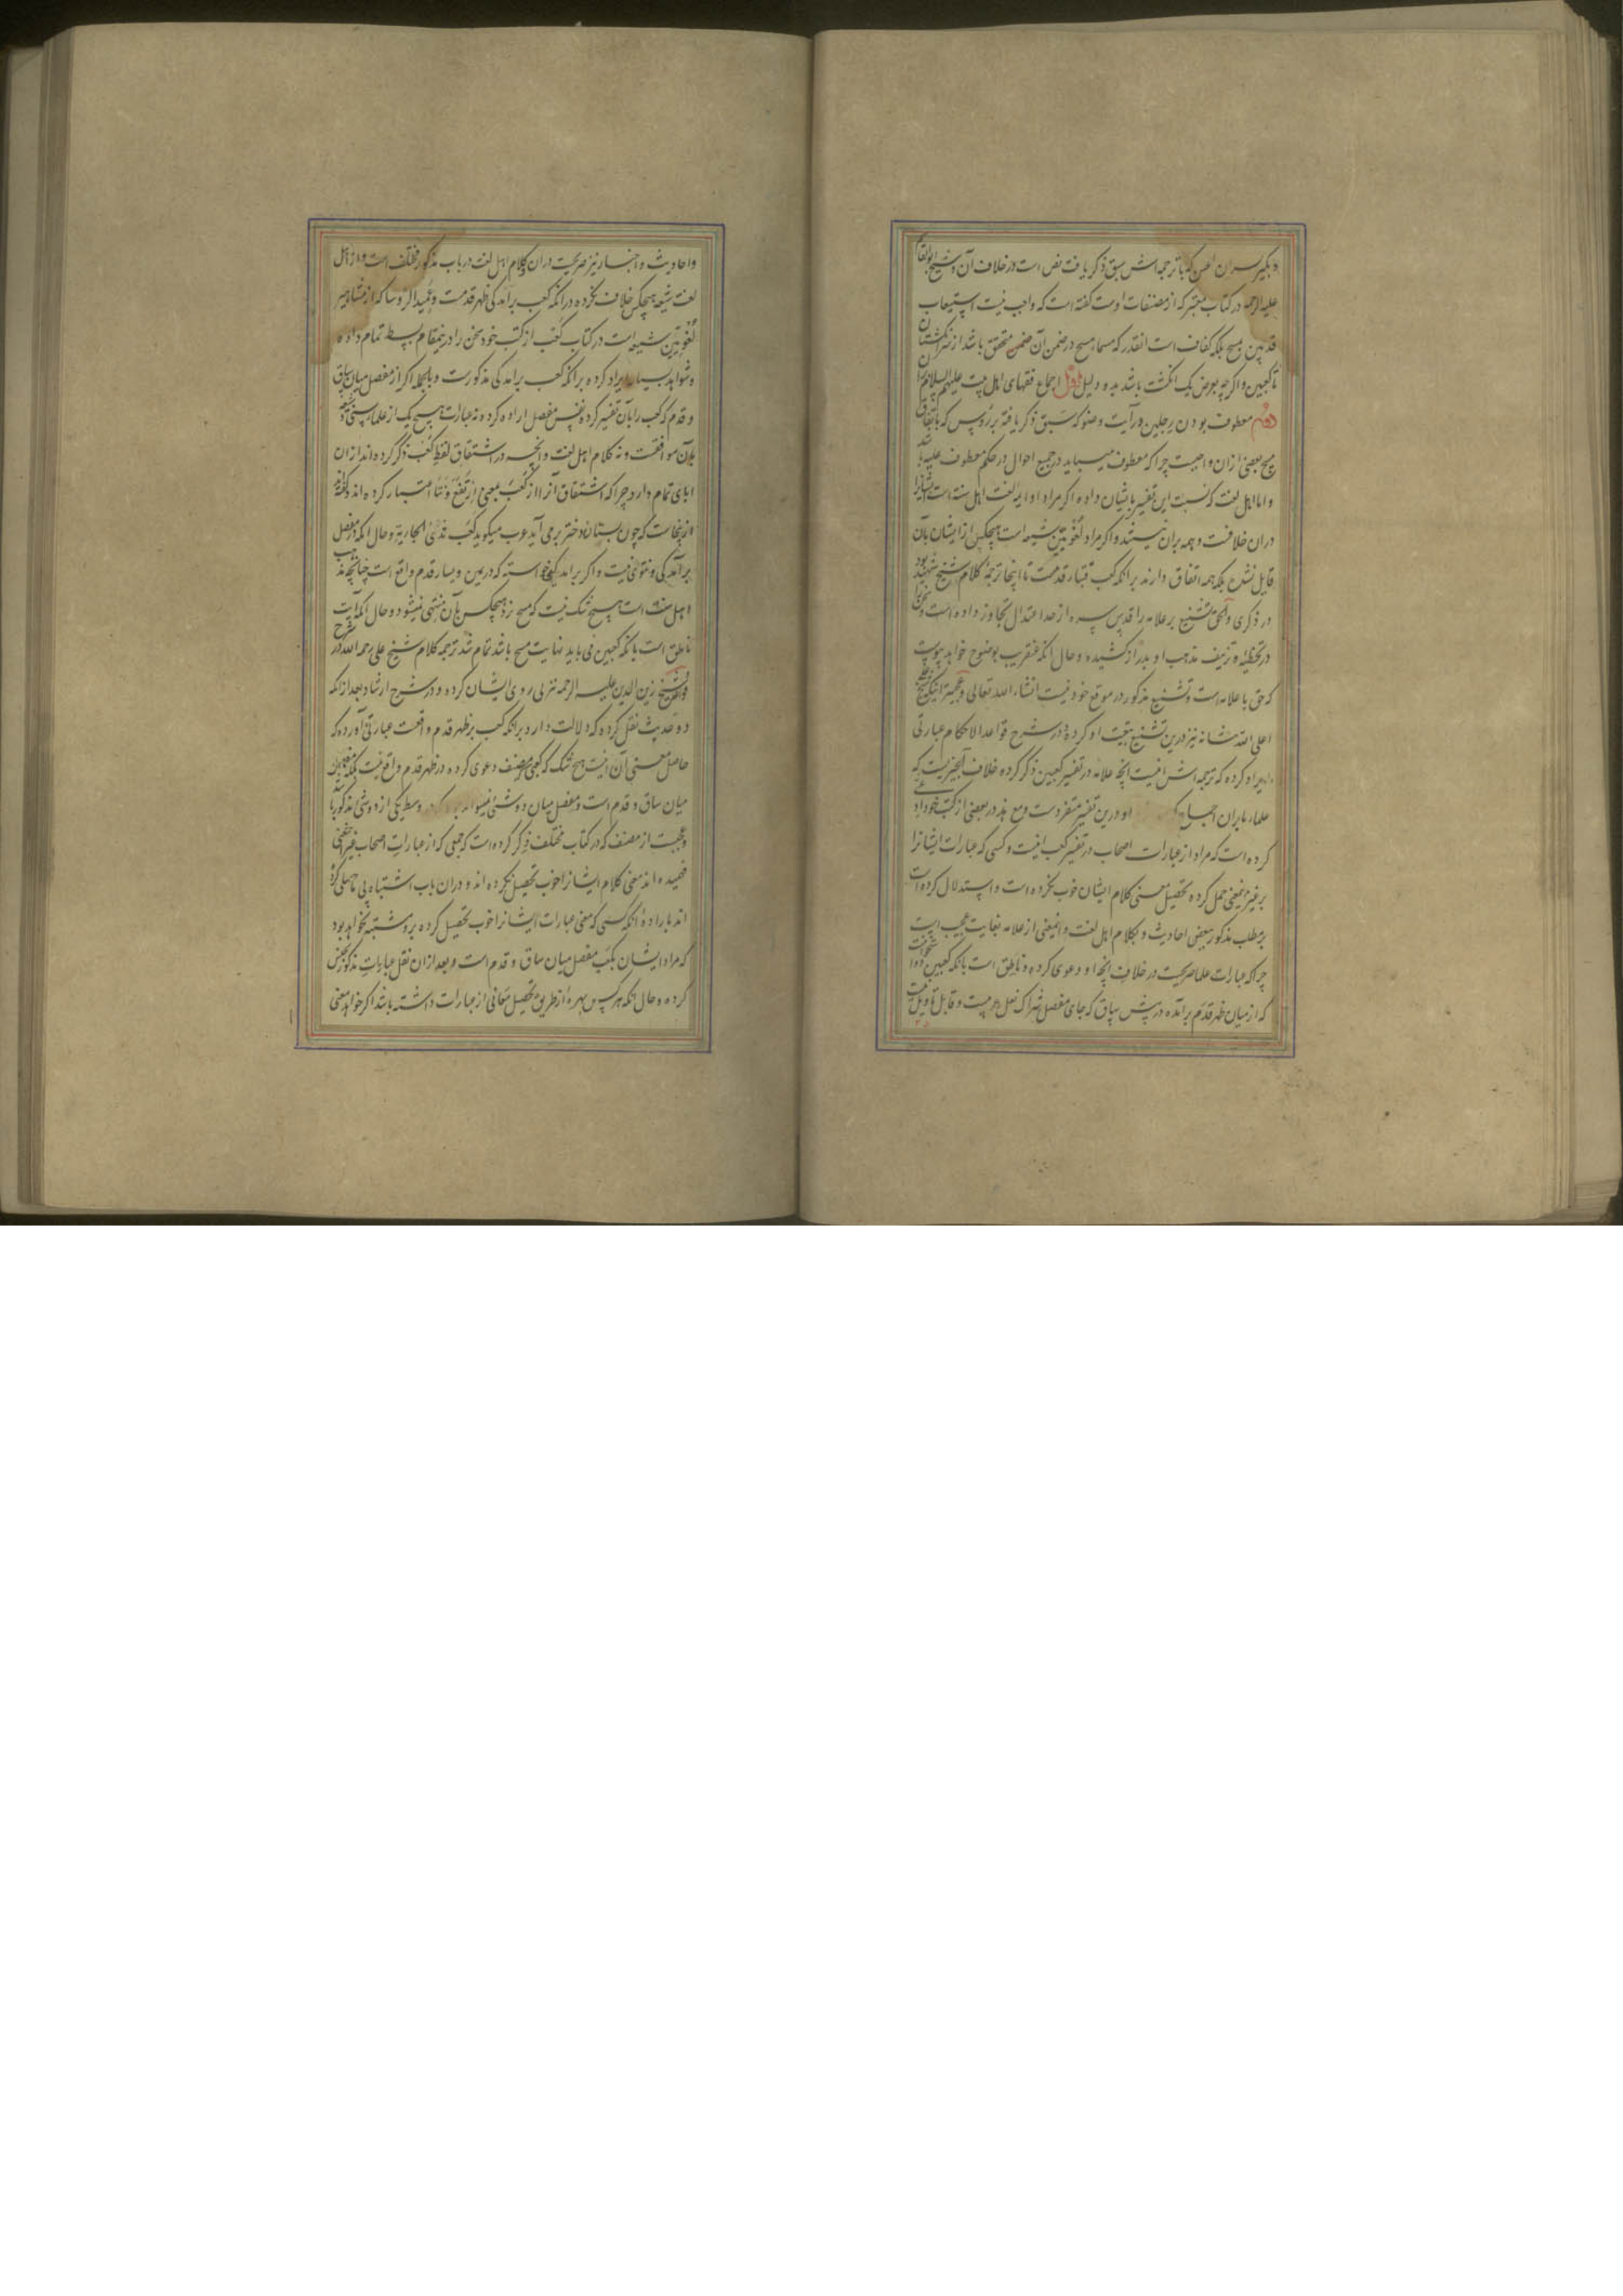 و بکیر پسران اعین که با ترجمه اش سبق ذکر یافت نص است در خلاف آن و شیخ ابو القاسم
علیه الرحمه در کتاب معتبر که از مصنفات اوست گفته است که واجب نیست استیعاب
قدمین بمسح بلکه کفاف است انقدر که مسمای مسح در ضمن آن ضمن متحقق باشد از سر انگشتان
تا کعبین و اگرچه بعرض یک انگشت باشد بدو دلیل اول اجماع فقهای اهل بیت علیهم السلام
دوم معطوف بودن رجلین در آیت وضو که سبق ذکر یافته بر رؤس که باتفاق
مسح بعضی ازان واجبست چرا که معطوف میباید در جمیع احوال در حکم معطوف علیه باشد
و اما اهل لغت که نسبت این تفسیر بایشان داده اگر مراد او ایمه لغت اهل سنت است ایشانرا
دران خلافست و همه بران نیستند و اگر مراد لغویین شیعه است هیچکس از ایشان بآن
قایل نشده بلکه همه اتفاق دارند برانکه کعب قبه قدمست تا اینجا ترجمه کلام شیخ شهید بود
در ذکری و الحق تشنیع بر علامه را قدس سره از حد اعتدال تجاوز داده است و سخن را
در تخطئه و تزییف مذهب او بدراز کشیده و حال آنکه عنقریب بوضوح خواهد پیوست
که حق با علامه است و تشنیع مذکور در موقع خود نیست انشاء الله تعالی و عجبتر اینکه شیخ علی
اعلی الله شانه نیز درین تشنیع تبعیت او کرده و در شرح قواعد الاحکام عبارتی
ایراد کرده که ترجمه اش اینست انچه علامه در تفسیر کعبین ذکر کرده خلاف آنچیزیست که
علماء ما بران اجماع او درین تفسیر متفردست و مع هذا در بعضی از کتب خود ادعای
کرده است که مراد از عبارات اصحاب در تفسیر کعب اینست و کسی که عبارات ایشانرا
بر غیر اینمعنی حمل کرده تحصیل معنی کلام ایشان خوب نکرده است و استدلال کرده است
بر مطلب مذکور ببعض احادیث و بکلام اهل لغت و اینمعنی از علامه بغایت عجیب است
چرا که عبارات علما صریحست در خلاف انچه او دعوی کرده و ناطق است بانکه کعبین دو استخوانست
که از میان ظهر قدم برآمده در پیش ساق که جای مفصل شراک نعل عربیست و قابل تاویل نیست
و احادیث و اخبار نیز صریحست دران و کلام اهل لغت در باب مذکور مختلف است و از اهل
لغت شیعه هیچکس خلاف نکرده درانکه کعب برآمدکی ظهر قدمست و عمید الرؤسا که از مشاهیر
لغویین شیعه است در کتاب کعب از کتب خود سخن را درین مقام بسط تمام داده
و شواهد بسیار ایراد کرده برانکه کعب برآمدکی مذکورست و بالجمله اگر از مفصل میان ساق
و قدم که کعب را بآن تفسیر کرده نفس مفصل اراده کرده نه عبارت هیچ یک از علماء سنی و شیعه
بآن موافقست و نه کلام اهل لغت و انچه در اشتقاق لفظ کعب ذکر کرده اند ازان
ابای تمام دارد چرا که اشتقاق آنرا از کعب بمعنی ارتفع و نتا اعتبار کرده اند و گفته اند
ازینجاست که چون پستان دختر برمی آید عرب میگوید کعب ثدی الجاریة و حال آنکه در مفصل
برآمدکی و نتوئی نیست و اگر برآمدکی خواسته که در یمین و یسار قدم واقع است چنانچه مذهب
اهل سنت است هیچ شک نیست که مسح نزد هیچکس بآن منتهی نمیشود و حال آنکه آیت
ناطق است بانکه کعبین می باید نهایت مسح باشد تمام شد ترجمه کلام شیخ علی رحمه الله در شرح
قواعد و شیخ زین الدین علیه الرحمه نیز پی روی ایشان کرده و در شرح ارشاد بعد ازانکه
دو حدیث نقل کرده که دلالت دارد برانکه کعب بر ظهر قدم واقعست عبارتی آورده که
حاصل معنی آن اینست هیچ شک که کعبی که مصنف دعوی کرده در ظهر قدم واقع نیست بلکه مفصل
میان ساق و قدم است و مفصل میان دو شئ نمیتواند بود که در وسط یکی از دو شئ مذکور باشد
و عجبست از مصنف که در کتاب مختلف ذکر کرده است که جمعی که از عبارات اصحاب غیر اینمعنی
فهمیده اند معنی کلام ایشانرا خوب تحصیل نکرده اند و دران باب اشتباه پی حاصلی کرده
اند با اراده آنکه کسی که معنی عبارات ایشانرا خوب تحصیل کرده برو مشتبه نخواهد بود
که مراد ایشان بکعب مفصل میان ساق و قدم است و بعد ازان نقل عبارات مذکور بجنس
کرده و حال آنکه هر کس بهره از طریق تحصیل معانی از عبارات داشته باشد اگر خواهد معنی